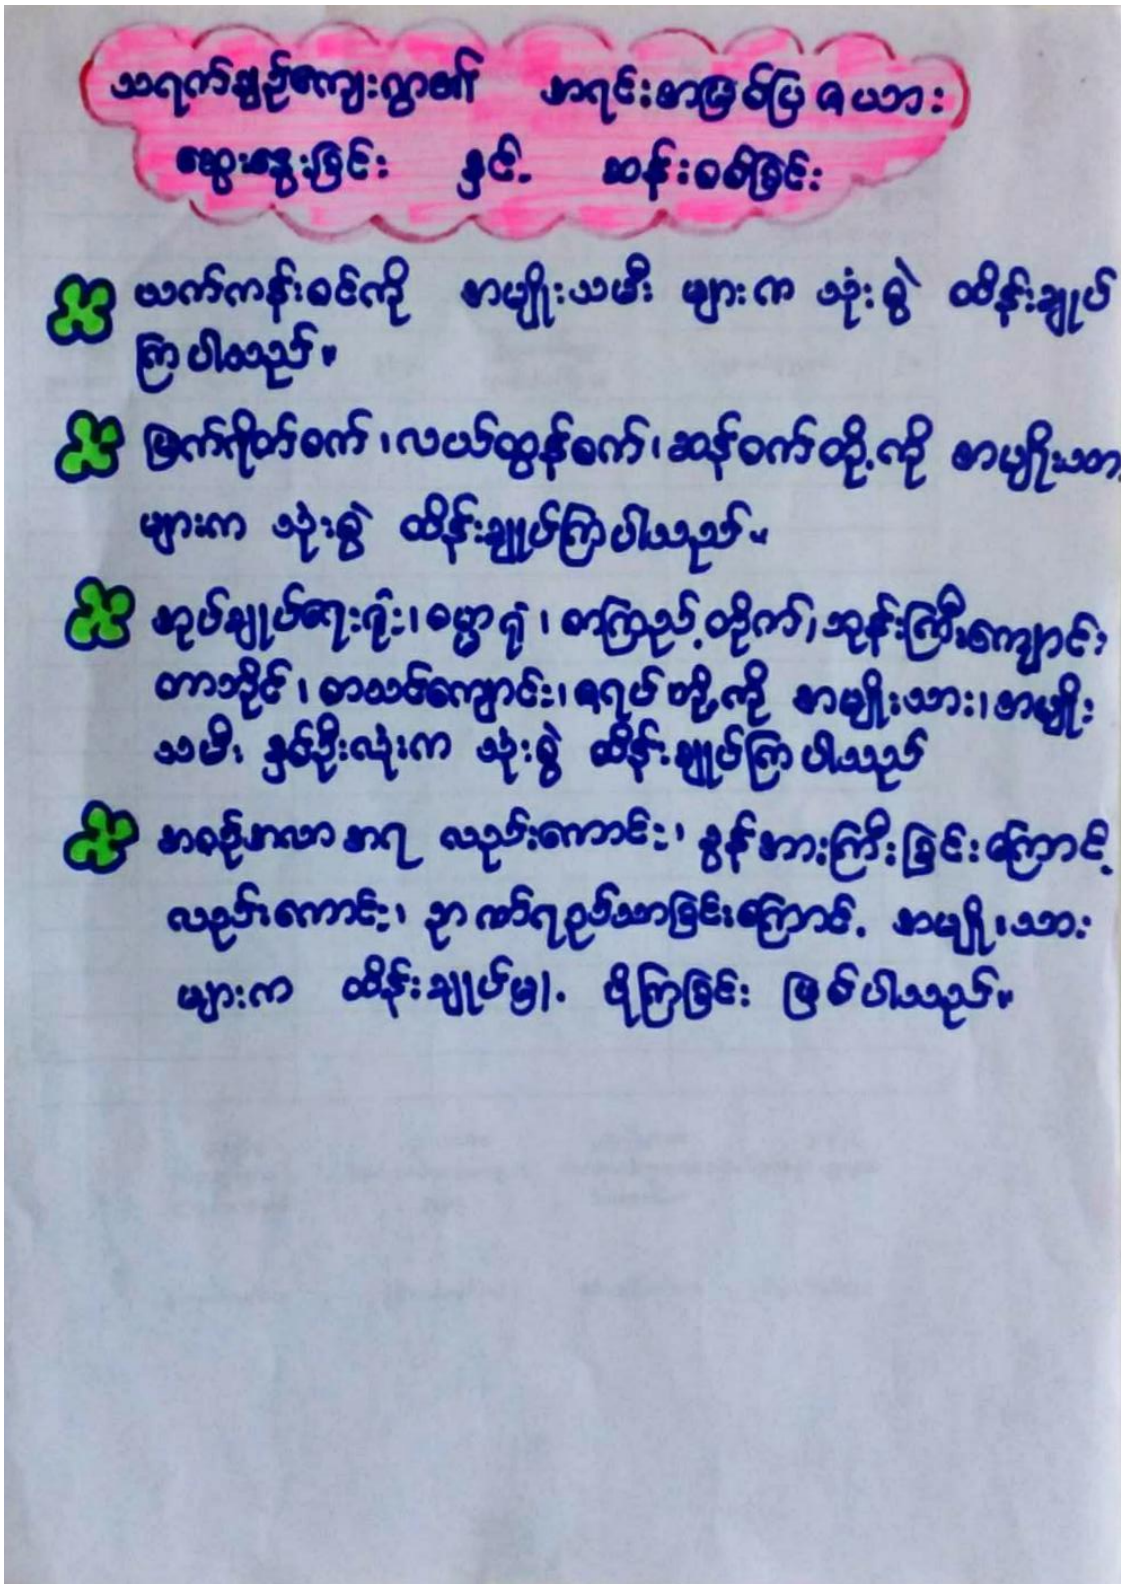 သရက်ချဉ်ကျေးရွာ၏ အရင်းအမြစ်ပြဇယား
ဆွေးနွေးခြင်း နှင့် ဆန်းစစ်ခြင်း
ယက်ကန်းစင်ကို အမျိုးသမီး များက သုံးစွဲ ထိန်းချုပ်
ကြပါသည်။
မြက်ရိတ်စက်၊လယ်ထွန်စက်၊ဆန်စက်တို့ကို အမျိုးသား
များက သုံးစွဲ ထိန်းချုပ်ကြပါသည်။
အုပ်ချုပ်ရေးရုံး၊ဓမ္မာရုံ၊စာကြည့်တိုက်၊ဘုန်းကြီးကျောင်း
တာဘိုင်၊စာသင်ကျောင်း၊ဇရပ်တို့ကို အမျိုးသား၊အမျိုး
သမီး နှစ်ဦးလုံးက သုံးစွဲ ထိန်းချုပ်ကြပါသည်
အစဉ်အလာအရ လည်းကောင်း၊ ခွန်အားကြီးခြင်းကြောင့်
လည်းကောင်း၊ ဉာဏ်ရည်သာခြင်းကြောင့် အမျိုးသား
များက ထိန်းချုပ်မှု ပိုကြခြင်း ဖြစ်ပါသည်။